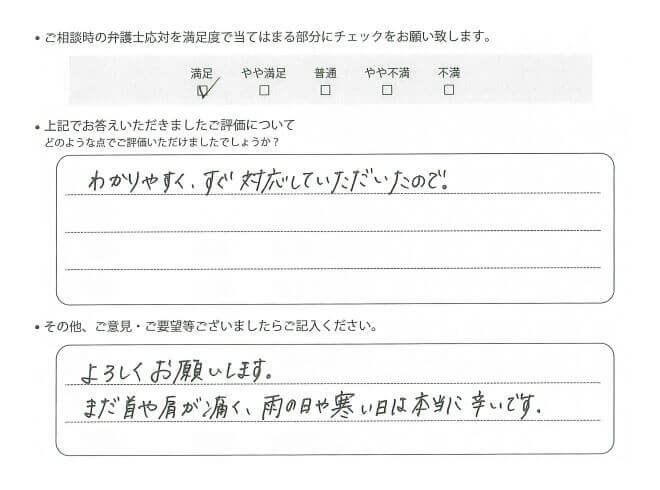 • ご相談時の弁護士応対を満足度で当てはまる部分にチェックをお願い致します。
満足 やや満足 普通 やや不満 不満
• 上記でお答えいただきましたご評価について
どのような点でご評価いただけましたでしょうか？
わかりやすく、すぐ対応していただいたので。
• その他、ご意見・ご要望等ございましたらご記入ください。
よろしくお願いします。
まだ首や肩が痛く、雨の日や寒い日は本当に辛いです。